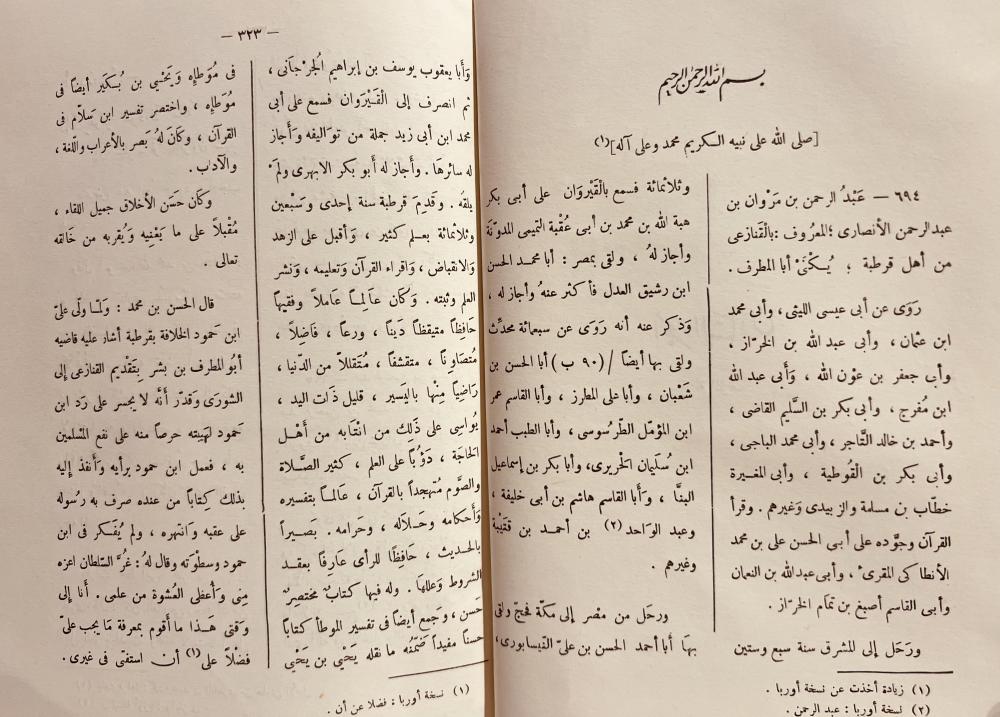 بسم الله الرحمن الرحيم
[صلى الله على نبيه الكريم محمد وعلى آله](١)
٦٩٤ — عَبْدُ الرحمن بن مَرْوان بن
عبدالرحمن الأنصارى ؛ المعْرُوف : بالْقَنازعى
من أهل قرطبة ؛ يُكْنَىْ أبا المطرف .
رَوَى عن أبى عيسى الليثى ، وأبى محمد
ابن عثمان ، وأبى عبد الله بن الخرّاز ،
وأبى جعفر بن عوْن الله ، وَأبى عبد الله
ابن مُفرج ، وأبى بكر بن السَّليم القاضى ،
وأحمد بن خالد التَّاجر ، وأبى محمد الباجى ،
وأبى بكر بن الْقُوطية ، وأبى المغيرة
خطّاب بن مسلمة والزبيدى وَغيرهم . وقرأ
القرآن وجوَّده على أبى الحسن على بن محمد
الأنطاكى المقرىْ ، وأبى عبدالله بن النعمان
وأبى القاسم أصبغ بن تمام الخرّاز .
وَرَحَل إلى المشرق سنة سبع وستين
وثلاثمائة فسمع بالْقَيْرَوَان على أبى بكر
هبة الله بن محمد بن أبى عُقْبة التميمى المدوّنة
وأجاز لهُ ، ولقى بمصر : أبا محمد الحسن
ابن رشيق العدل فأكثر عنهُ وأجاز له ،
وَذكر عنه أنه رَوَى عن سبعمائة محدِّث
ولقى بها أيضاً / (٩٠ ب) أبا الحسن بن
شَعْبان ، وأبا على المطارز ، وأبا القاسم عمر
ابن المؤمّل الطّرسُوسى ، وأبا الطيب أحمد
ابن سُلَيمان الحريرى، وأبا بكر بن إسماعيل
البنَّا ، وَأبا القاسم هاشم بن أبى خليفة ،
وعبد الوَاحد (٢) بن أحمد بن قتَيْبة
وغيرهم .
ورحَل من مصْر إلى مكّة فحجّ ولقى
بهَا أبا أحمد الحسن بن علىّ النّيسابورى،
(١) زيادة أخذت عن نسخة أوربا .
(٢) نسخة أوربا : عبد الرحمن .
— ٣٢٣ —
وَأبا يعقوب يوسف بن إبراهيم الجُرْجَانى ،
ثم انصرف إلى الْقَيْرَوان فسمع على أبى
محمد ابن أبى زيد جملة من تواليفه وَأجاز
له سائرهَا . وأجاز له أَبو بكر الابهرى ولمَ
يلقَه . وقدِمَ قرطبة سنة إحدى وَسَبْعين
وثلاثمائة بعلم كثير ، وَأقبل على الزهد
وَالانقباض ، وَاقراء القرآن وَتعليمه ، وَنشر
العلم وبثه . وَكَان عَالماً عَاملاً وفقيهاً
حَافِظاً متيقظاً دَيناً ، ورعاً ، فَاضِلاً ،
مُتصَاوناً ، متقشفاً ، مُتَقللاً من الدّنيا ،
رَاضياً مِنْها باليَسير ، قليل ذَات اليد ،
يُواسِى على ذَلِك من انْتَابه من أهْل
الحَاجَة ، دَؤُباً على العلم ، كثير الصَّلاة
والصَّوم مُتهجداً بالقرآن ، عَالماً بتفسيره
وَأحكامه وَحَلالَه ، وحَرامه . بَصيراً
بالحديث ، حَافِظاً للرأى عَارِفاً بعقد
الشروط وَعللها . وله فيها كتابٌ مختصِرٌ
حَسن ، وَجمع أيضاً فى تفسير الموطأ كتاباً
حسناً مفيداً ضَمّنهُ ما نقله يَحْيى بن يَحْيى
فى مُوَطاٍه وَيَحْيى بن بُكَير أيضاً فى
مُوَطاٍه ، واختصر تفسير ابن سَلّام فى
القرآن ، وكَانَ لهُ بَصر بالأعراب واللّغة ،
والآداب .
وكَان حَسَن الأخلاق جميل اللقاء ،
مُقْبلاً على ما يَعْنيه وَيُقربه من خَالقه
تعالى .
قال الحسن بن محمد : وَلمّا ولّى علىّ
ابن حَمود الخلافة بقرطبة أشار عليه قاضيه
أبُو المطرف بن بشر بِتَقْديم القنازعى إلى
الشورَى وَقدّر أنَّه لا يجسر على رَد ابن
حَمود لهَيبته حرصاً منه على نفع المسْلمين
به ، فعمل ابن حمود برأيه وَأنفذ إليه
بذلك كِتاباً من عنده صرف به رسُوله
على عقبه وَانتهره ، ولم يُفَكر فى ابن
حمود وسطْوَته وقال لهُ : غُرَّ السّلطان اعزه
مِنى وَأُعطى العُشوة من على . أنا إلى
وَقتى هَذا ما أقوم بمعرفة مَا يجب علىّ
فضْلاً على(١) أن استفتى فى غيرى .
(١) نسخة أوربا : فضلا عن أن .